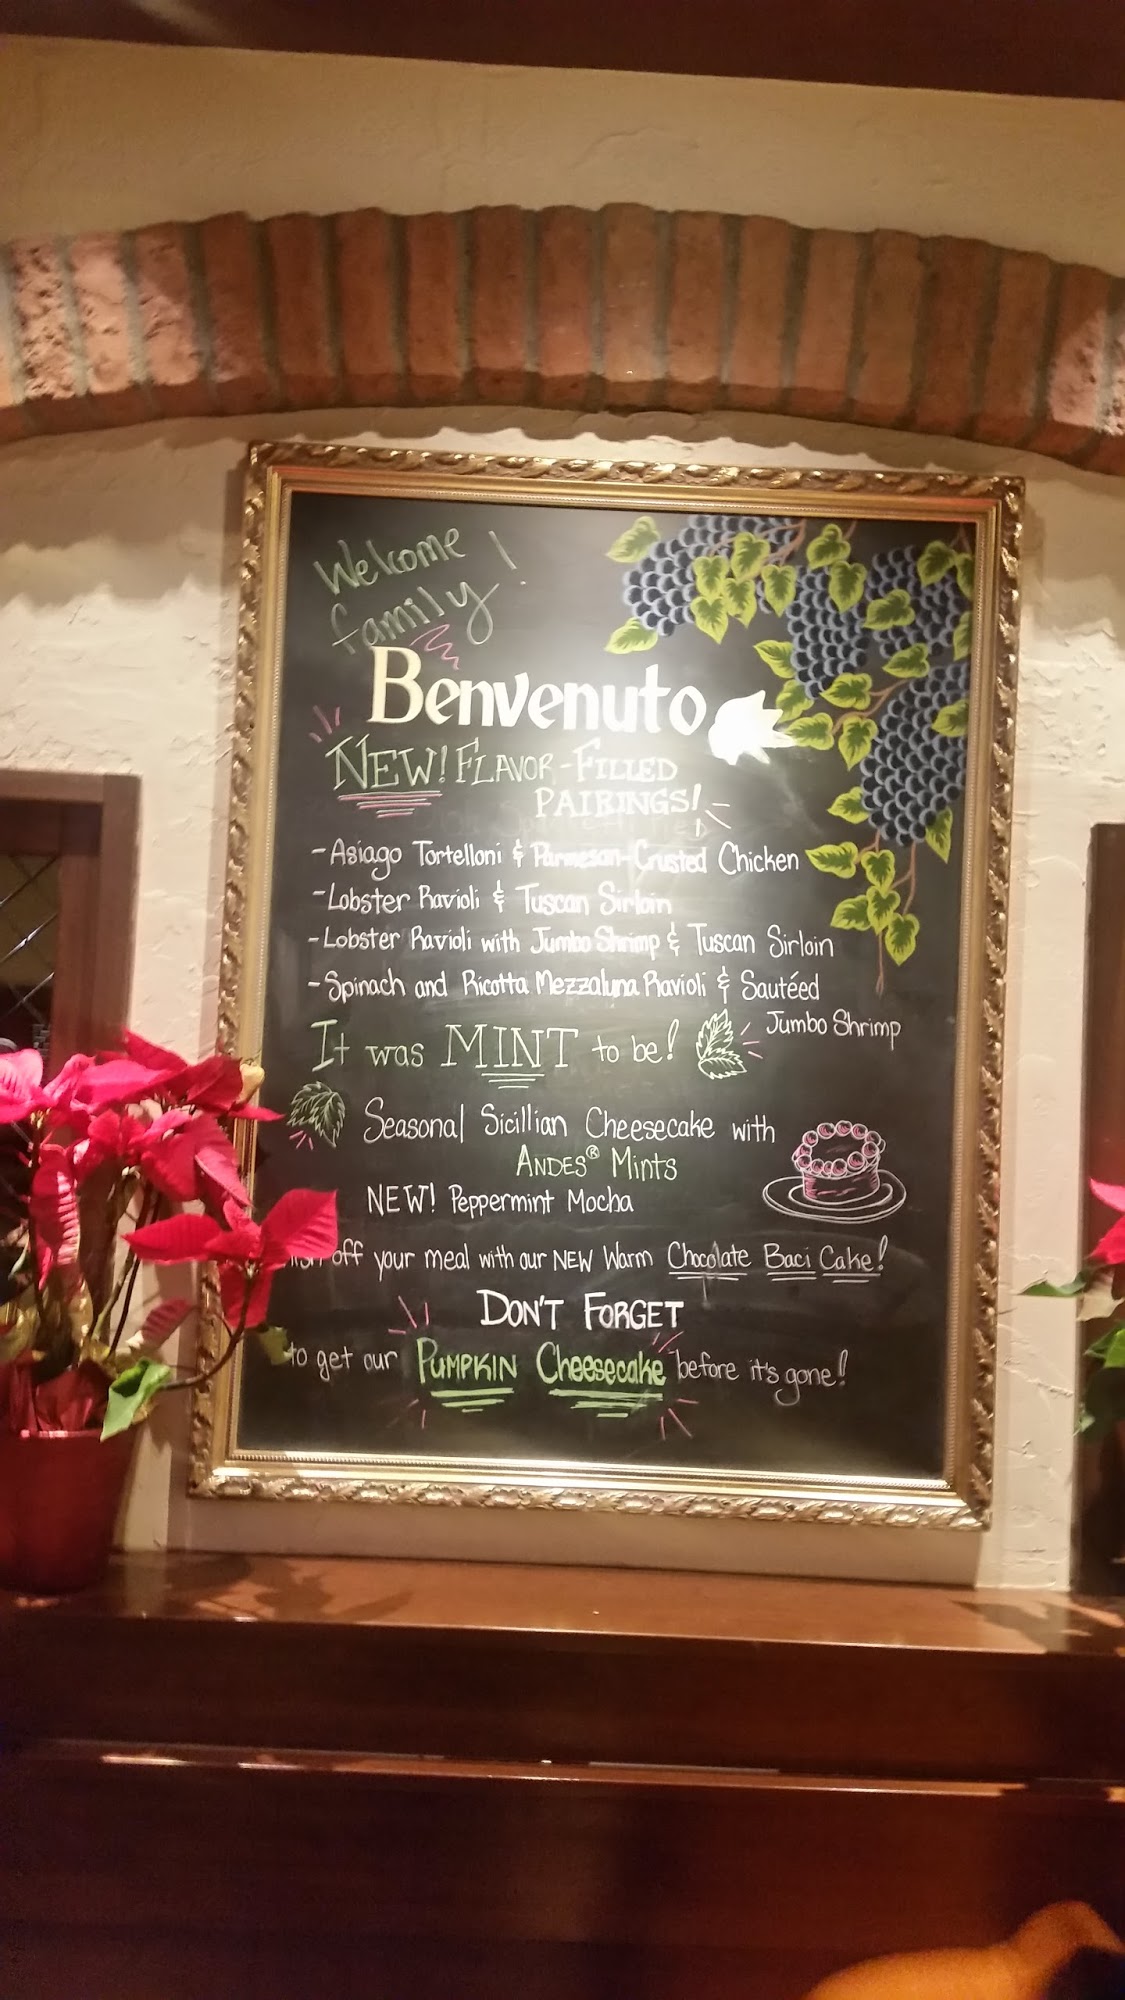 Welcome
family!
Benvenuto
NEW! FLAVOR-FILLED
PAIRINGS!
-Asiago Tortelloni & Parmesan-Crusted Chicken
-Lobster Ravioli & Tuscan Sirloin
-Lobster Ravioli with Jumbo Shrimp & Tuscan Sirloin
-Spinach and Ricotta Mezzaluna Ravioli & Sautéed
Jumbo Shrimp
It was MINT to be!
Seasonal Sicillian Cheesecake with
ANDES® Mints
NEW! Peppermint Mocha
off your meal with our NEW Warm Chocolate Baci Cake!
DON'T FORGET
to get our PUMPKIN Cheesecake before it's gone!